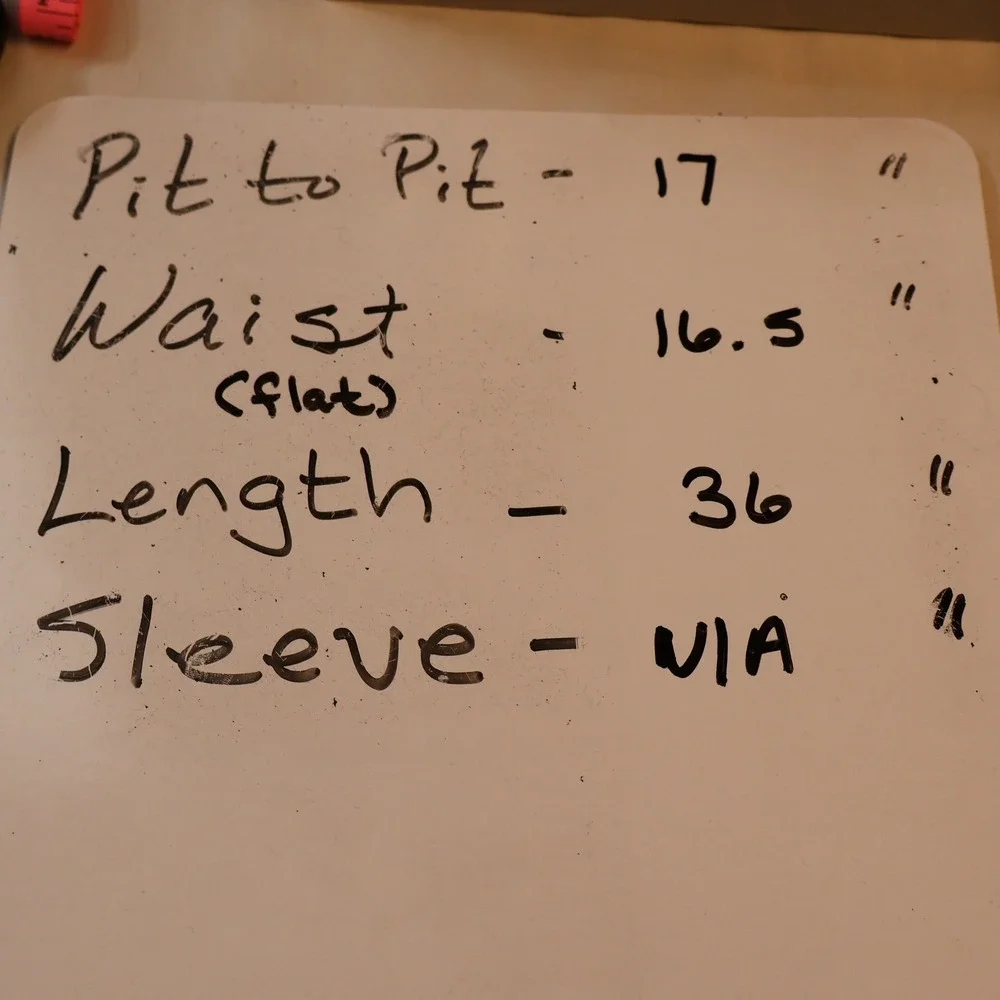 Pit to Pit - 17 "
Waist - 16.5 "
(flat)
Length - 36 "
Sleeve - N/A "